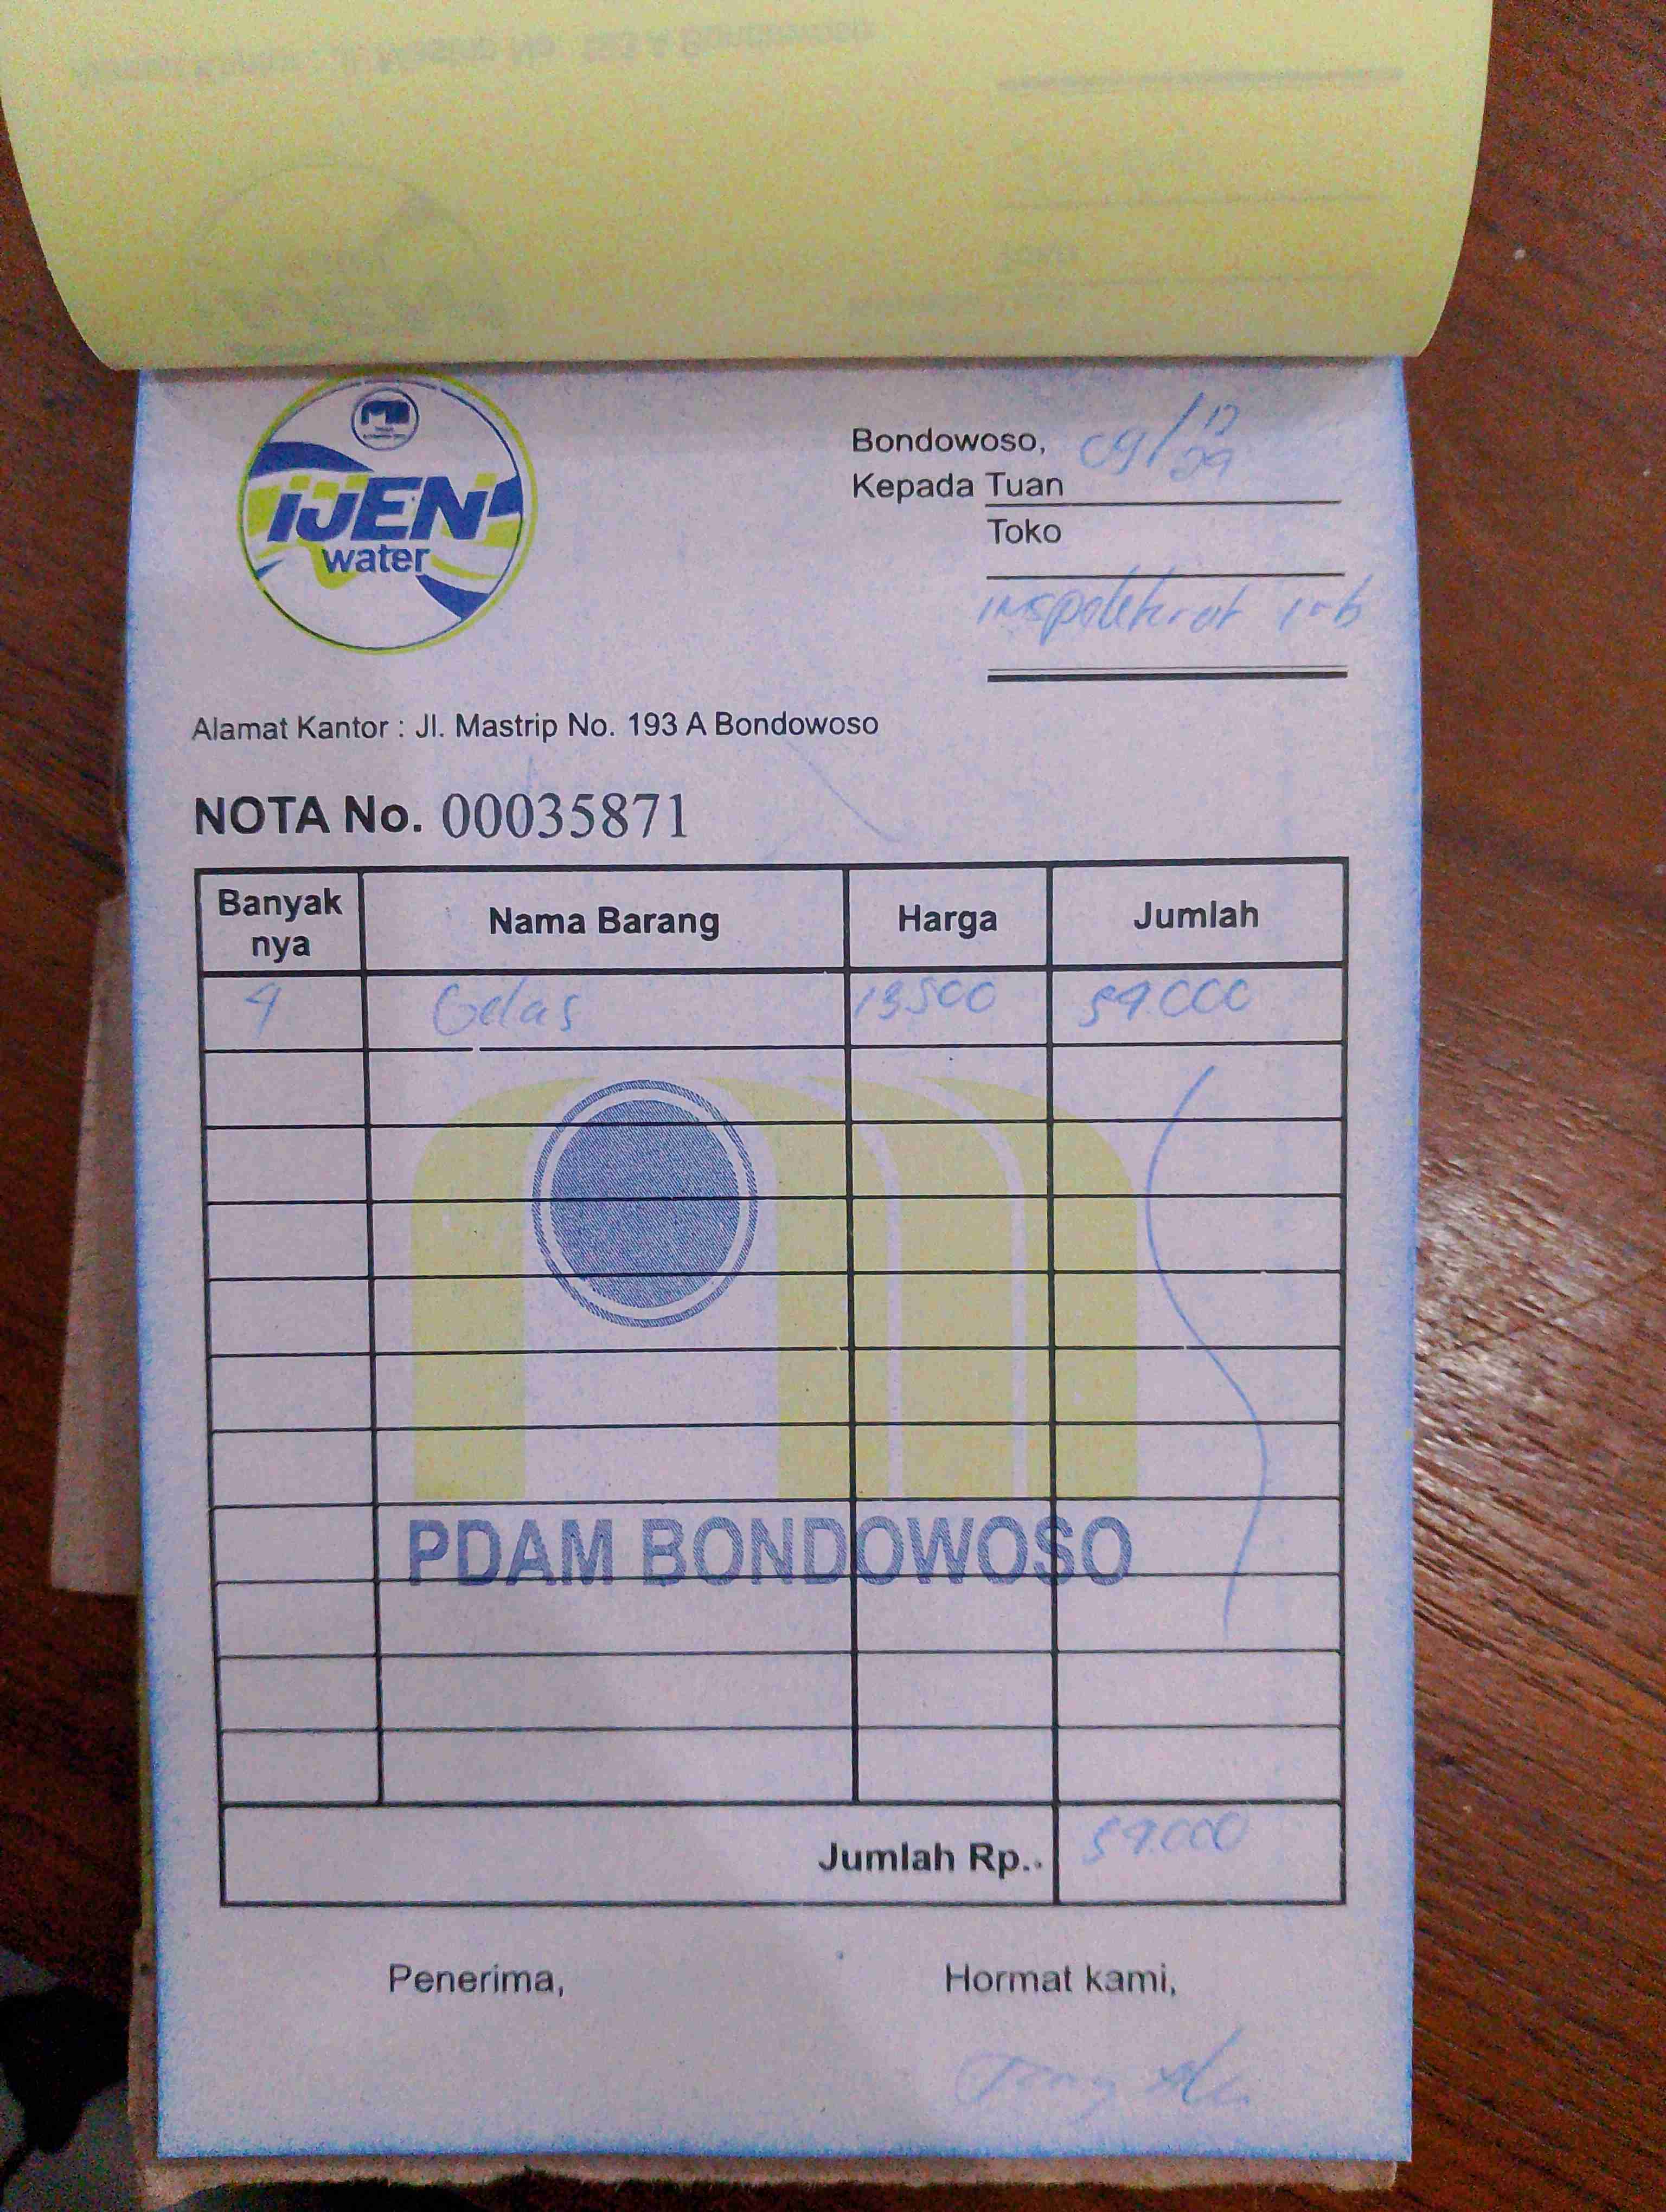 IJEN
water
Bondowoso, 09/12
24
Kepada Tuan
Toko
Inspektorat
Alamat Kantor : Jl. Mastrip No. 193 A Bondowoso
NOTA No. 00035871
Banyak nya Nama Barang Harga Jumlah
4 Gelas 13.500 54.000
PDAM BONDOWOSO
Jumlah Rp.. 54.000
Penerima, Hormat kami,